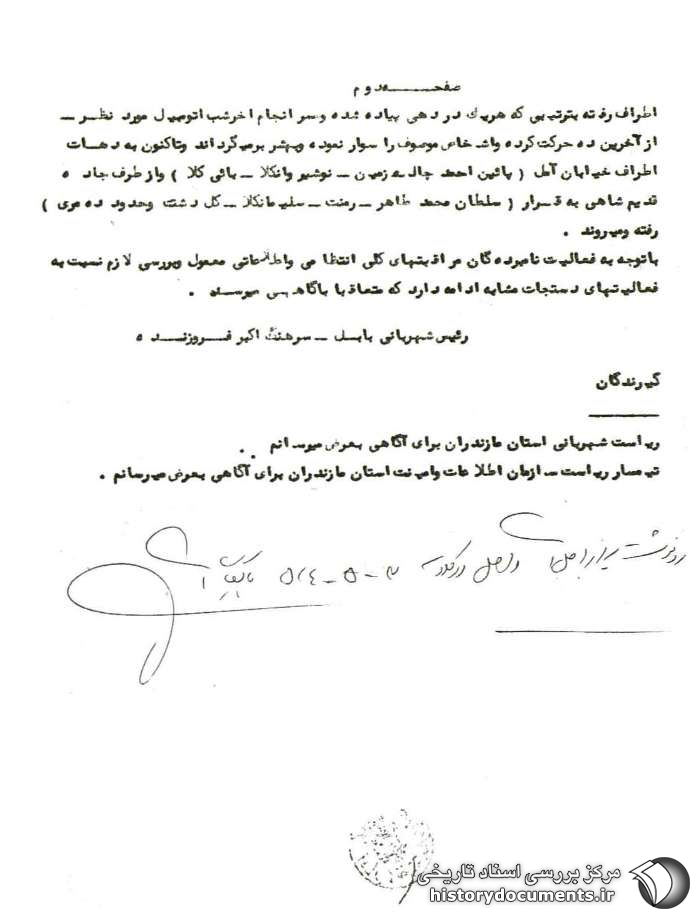 صفحـــــه دوم
اطراف رفته بترتیبی که هریك در دهی پیاده شده وسر انجام اخرشب اتومبیل مورد نظـر ــ
از آخرین ده حرکت کرده واشخاص موصوف را سوار نموده وبشهر برمیگرداند وتاکنون به دهـات
اطراف خیابان آمل ( پائین احمد چاله زمین ــ نوشیروانکلا ــ بائی کلا ) واز طرف جاده
قدیم شاهی به قـرار ( سلطان محمد طاهر ــ رمنت ــ سلیمانکلا ــ کل دشت وحدود ده مری )
رفته ومیروند .
باتوجه به فعالیت نامبرده گان مراقبتهای کلی انتظامی واطلاعاتی معمول وبررسی لازم نسبت به
فعالیتهای دستجات مشابه ادامه دارد که متعاقبا باگاهـی میرسـد .
رئیس شهربانی بابـل ــ سرهنگ اکبر فـروزنـده
گیرندگان
ریاست شهربانی استان مازندران برای آگاهی بعرض میرسانم .
تیمسار ریاست سازمان اطلاعات وامنیت استان مازندران برای آگاهی بعرض میرسانم .
رونوشت برابر اصل است
مرکز بررسی اسناد تاریخی
historydocuments.ir